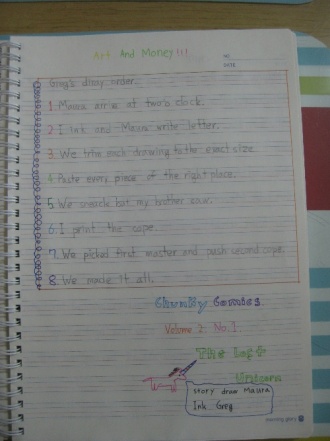 Art And Money!!!
NO.
DATE
Greg's diary order.
1. Maura arrive at two o clock.
2. I ink and Maura write letter.
3. We trim each drawing to the exact size.
4. Paste every piece of the right place.
5. We sneack but my bother saw.
6. I print the cope.
7. We picked first master and push second cope.
8. We made it all.
Chunky Comics.
Volume 2 No. 1.
The Left
Unicorn
story draw Maura
Ink Greg
morning glory